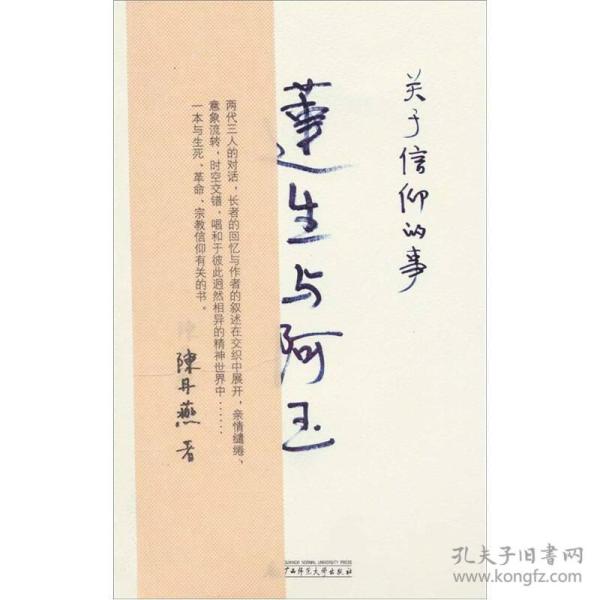 关于信仰的事
蓮生与阿玉
两代三人的对话，长者的回忆与作者的叙述在交织中展开，亲情缱绻、
意象流转，时空交错，唱和于彼此迥然相异的精神世界中……
一本与生死、革命、宗教信仰有关的书。
陳丹燕 著
GUANGXI NORMAL UNIVERSITY PRESS
广西师范大学出版社
孔夫子旧书网
www.kongfz.com